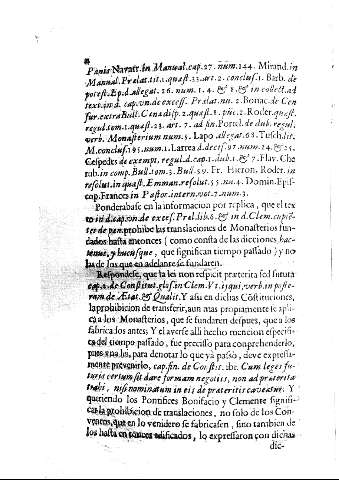 Panis Navarr. in Manual. cap. 27. num. 144. Mirand. in
Manual. Prelat. tit. 1. quæst. 33. art. 2. conclus. 1. Barb. de
potest. Ep. d. allegat. 26. num. 1. 4. & 8. & in collect. ad
text. in d. cap. vn. de excess. Prelat. nu. 2. Bonac. de Cen
sur. extra Bull. Cena disp. 2. quæst. 2. pũc. 2. Roder. quæst.
regul. tom. 1. quæst. 23. art. 7. ad fin. Portel. de dub. regul.
verb. Monasterium num. 5. Lapo allegat. 63. Tuschde lit.
M. conclus. 295. num. 11. Larrea d. decis. 97. num. 24. & 25.
Cespedes de exempt. regul. d. cap. 1. dub. 1. & 7. Flav. Che
rub. in comp. Bull. tom. 3. Bull. 59. Fr. Hieron. Roder. in
resolut. in quæst. Emman. resolut. 55. nu. 4. Domin. Epis-
cop. Frances in Pastor. intern. not. 7. num. 3.
Ponderabase en la informacion por replica, que el tex
to in d. cap. vn. de exces. Prel. lib. 6. & in d. Clem. cupiẽ-
ter de pœn. prohibe las translaciones de Monasterios fun-
dados hasta entonces ( como consta de las dicciones, hac-
tenus, y hucusque, que significan tiempo passado ) y no
las de los que en adelante se fundaren.
Respondese, que la lei non respicit præterita sed futura
cap. 2. de Constitut. glos. in Clem. Vt ij qui, verb. in poste-
rum de Ætat. & Qualit. Y assi en dichas Cõstituciones,
la prohibicion de transferir, aun mas propiamente se apli-
ca a los Monasterios, que se fundaren despues, que a los
fabricados antes; Y el averse alli hecho mencion especifi-
ca del tiempo passado, fue precisso para comprehenderlo,
pues vna lei, para denotar lo que yà passò, deve expressa-
mente prevenirlo, cap. fin. de Const. ibi. Cum leges fu-
turis certum sit dare formam negotijs, non ad præterita
trahi, nisi nominatim in eis de præteritis caveatur. Y
queriendo los Pontifices Bonifacio y Clemente signifi-
car la prohibicion de translaciones, no solo de los Con-
ventos, que en lo venidero se fabricassen, sino tambien de
los hasta en tonces edificados, lo expressaron con dichas
dic-